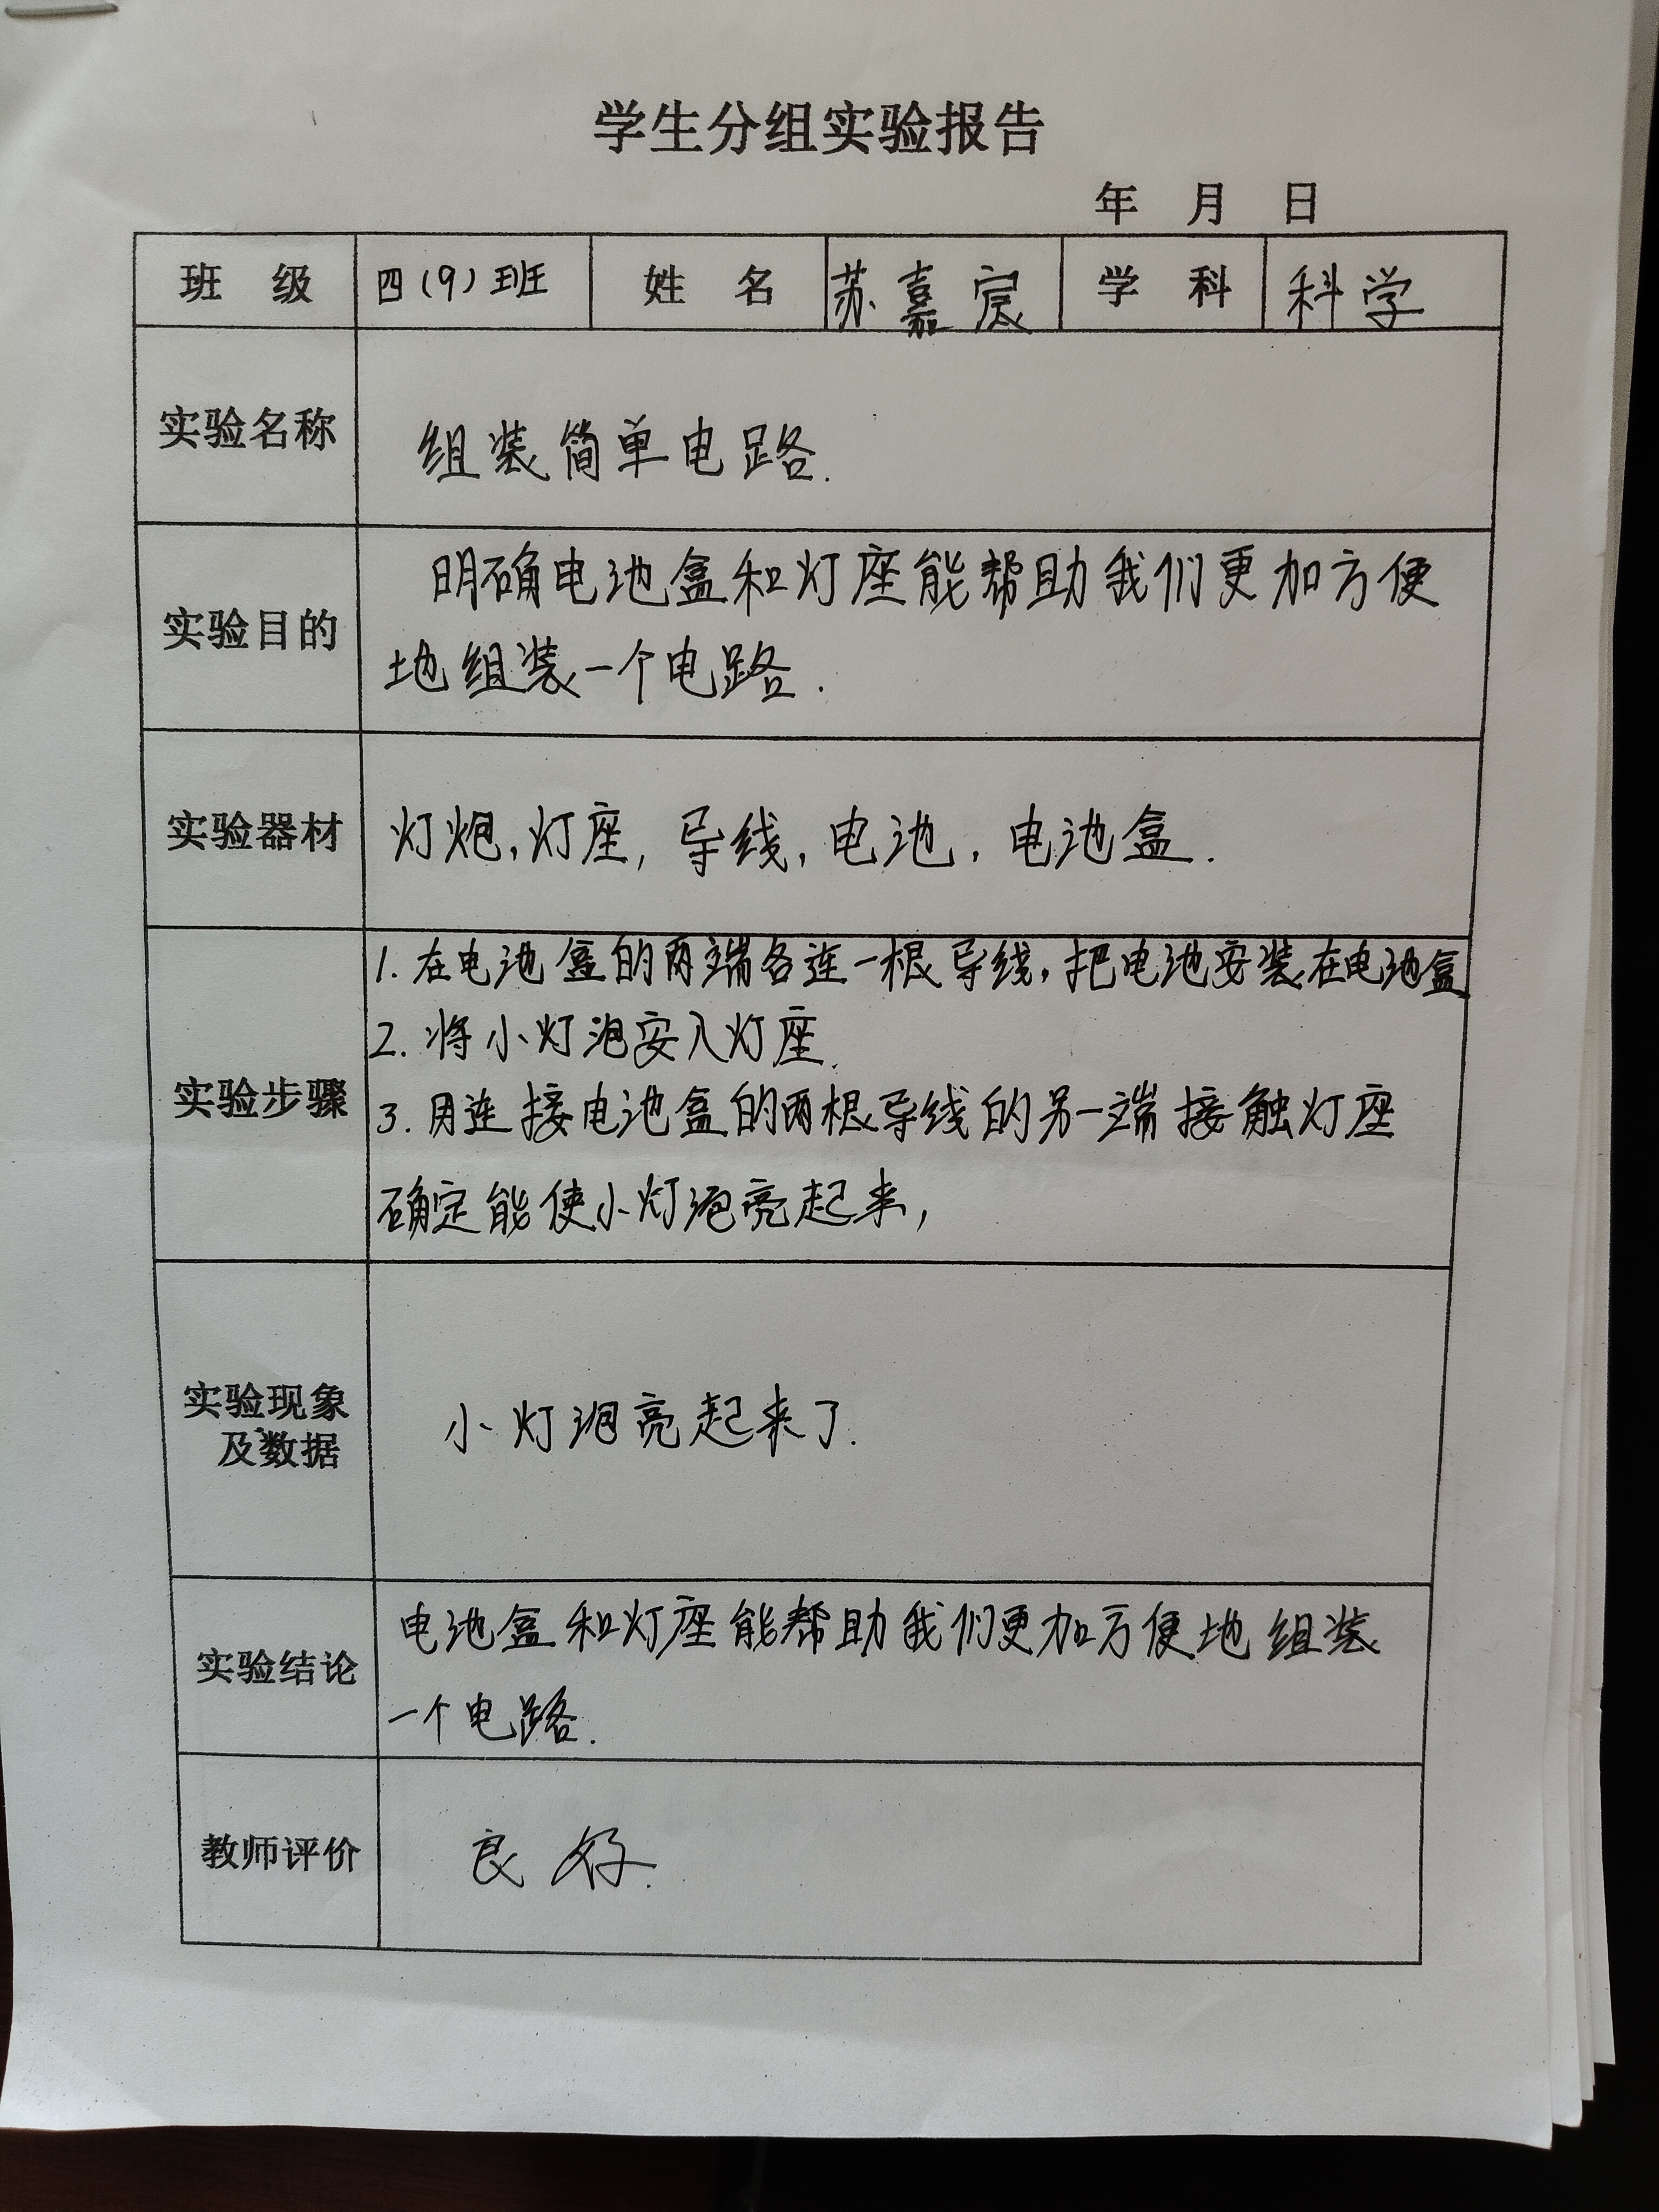 学生分组实验报告
年 月 日
班 级 四（9）班 姓 名 苏嘉宸 学 科 科学
实验名称 组装简单电路.
实验目的 明确电池盒和灯座能帮助我们更加方便
地组装一个电路.
实验器材 灯炮,灯座,导线,电池,电池盒.
实验步骤 1.在电池盒的两端各连一根导线,把电池安装在电池盒
2.将小灯泡安入灯座.
3.用连接电池盒的两根导线的另一端接触灯座
确定能使小灯泡亮起来,
实验现象
及数据 小灯泡亮起来了.
实验结论 电池盒和灯座能帮助我们更加方便地组装
一个电路.
教师评价 良好.